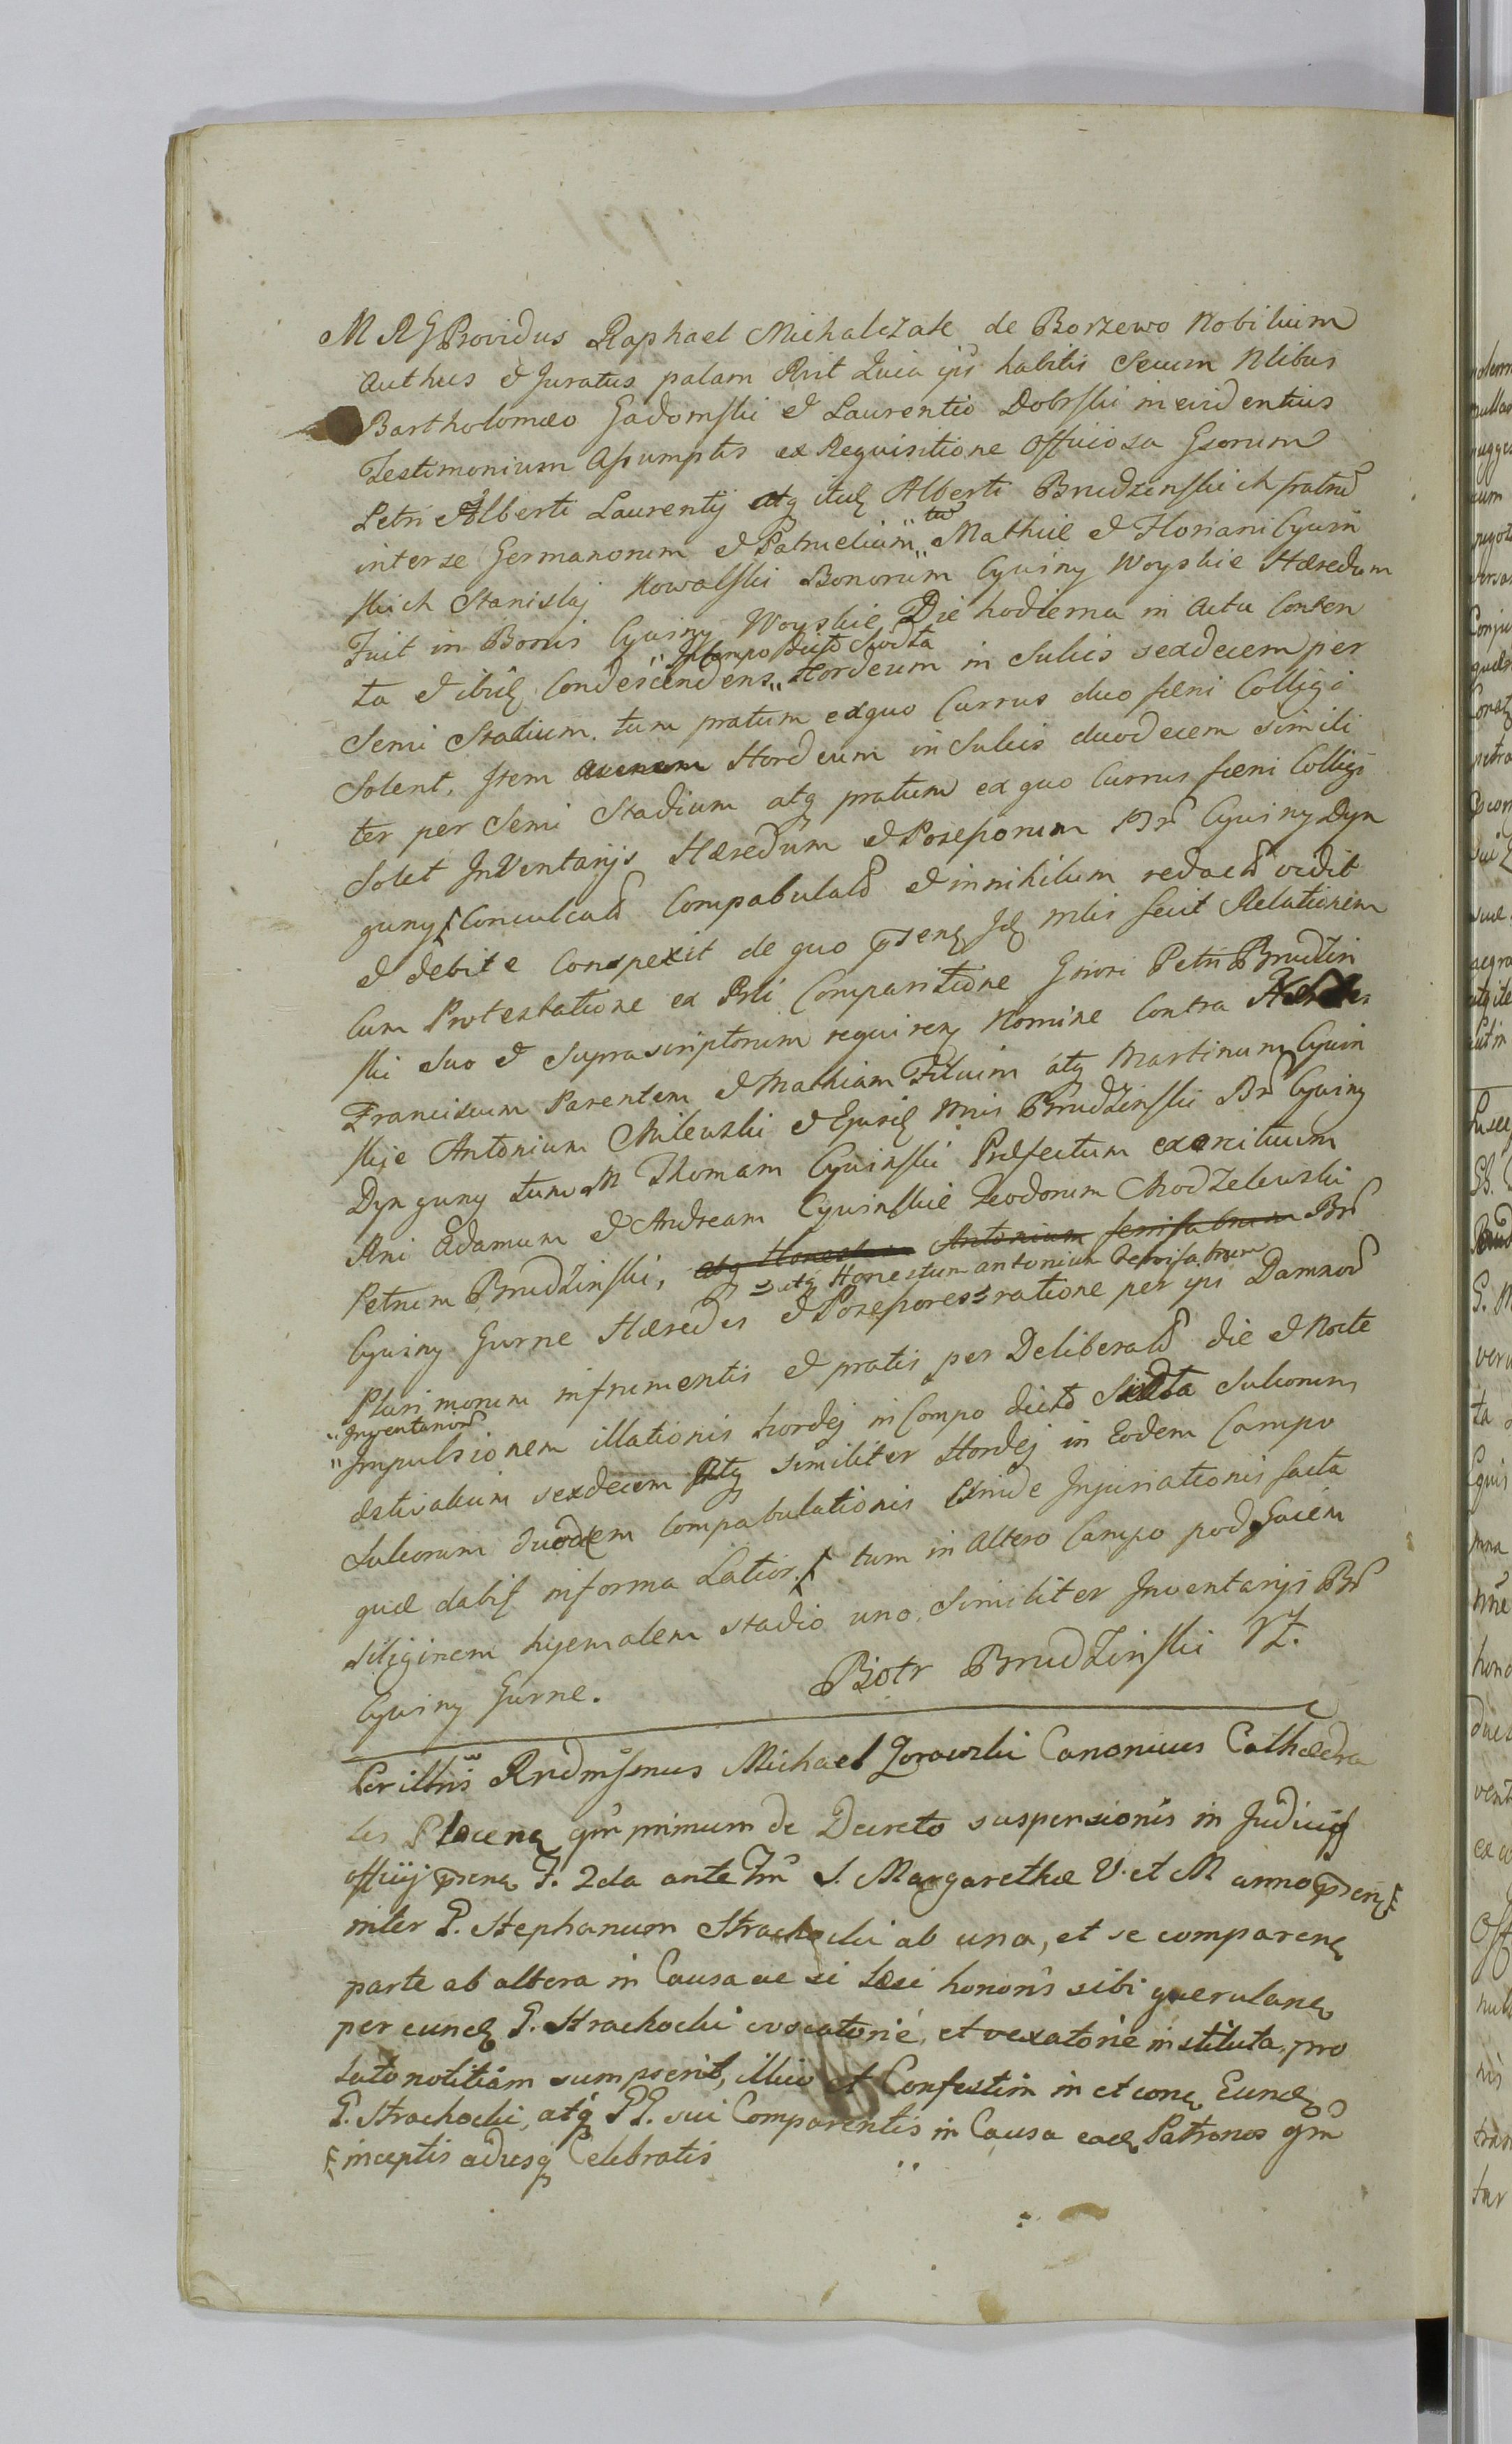 M R G Providus Raphael Michalczak de Borzewo Nobilium
authus et Juratus palam Rnit Quia ijs habitis Secum Nlibus
Bartholomæo Gadomski et Laurentio Dobrski in evidentius
Testimonium assumptis ex Requisitione Officiosa Gsorum
Petri Alberti Laurentij atq itidē Alberti Brudzinskich fratrū
inter se Germanorum et Patruelium „tū„ Mathiæ et Floriani Cywin
skich Stanislaj Kowalski Bonorum Cywiny Woyskie Hæredum
Fuit in Bonis Cywiny Woyskie Die hodierna in Actu Conten
„In Campo dicto Siodła
ta et ibidē Condescendens „ Hordeum in Sulcis sexdecem per
Semi Stadium. tum pratum ex quo Currus duo fæni Colligi
Solent, Item avenam Hordeum in Sulcis duodecem simili
ter per Semi Stadium atq pratum ex quo Currus fæni Colligi
Solet InVentarijs Hæredum et Poreporum Br̃ Cywiny Dyn
guny Conculcatū Compabulatū et in nihilum redactū vidit
et debite Conspexit de quo pseñ Jdē mlis fecit Relationem
Cum Protestatione ex Prti Comparitione Gnrosi Petri Brudzin
ski Suo et Suprascriptorum requireñ Nomine Contra
Franciscum Parentem et Mathiam Filium atq Martinum Cywin
skie Antonium Milewski et Ejusdē Mris Brudzinski Br̃ Cywiny
Dynguny tum M Thomam Cywinski Præfectum exercituum
Ani Adamum et Andream Cywinskie Teodorum Modzelewski
Petrum Brudzinski, atq Honestum Antonium ferrifabrum Br̃
atq Honestum antonium ferrifabrum
Cywiny Gurne Hæredes et Porepores ratione per ijs Damnorū
Plurimorum in frumentis et pratis per Deliberatū die et Nocte
„Inventariorū
„Impulsionem illationis hordej in Campo dicto Siodła Sulcorum
æstivalium sexdecem Atq similiter Hordej in Eodem Campo
Sulcorum duodecem Compabulationis Exinde Injuriationis facta
quæ dabit in forma Latior. tum in Altero Campo pod Gaiem
siliginem hyemalem stadio uno Similiter Inventarijs Br̃
Cywiny Gurne.
Piotr Brudzinski
Perilltris Rndmssimus Michael Zorawski Canonicus Cathedra
lis Ploceñ qm̃ primum de Decreto suspensionis in Judicijs
officij pseñ F. 2da ante Fm̃ S. Margarethæ V. et M anno pseñ
inter G. Stephanum Strachocki ab una, et se compareñ
parte ab altera in Causa ac si Læsi honoris sibi querulañ
per eundē G. Strachocki evocatorie, et vexatorie instituta, pro
lato notitiam sumpserit, illico et Confestim in et coñ Eundē
G. Strachocki, atq PP. sui Comparentis in Causa eadē Patronos qm̃
inceptis adusq Celebratis